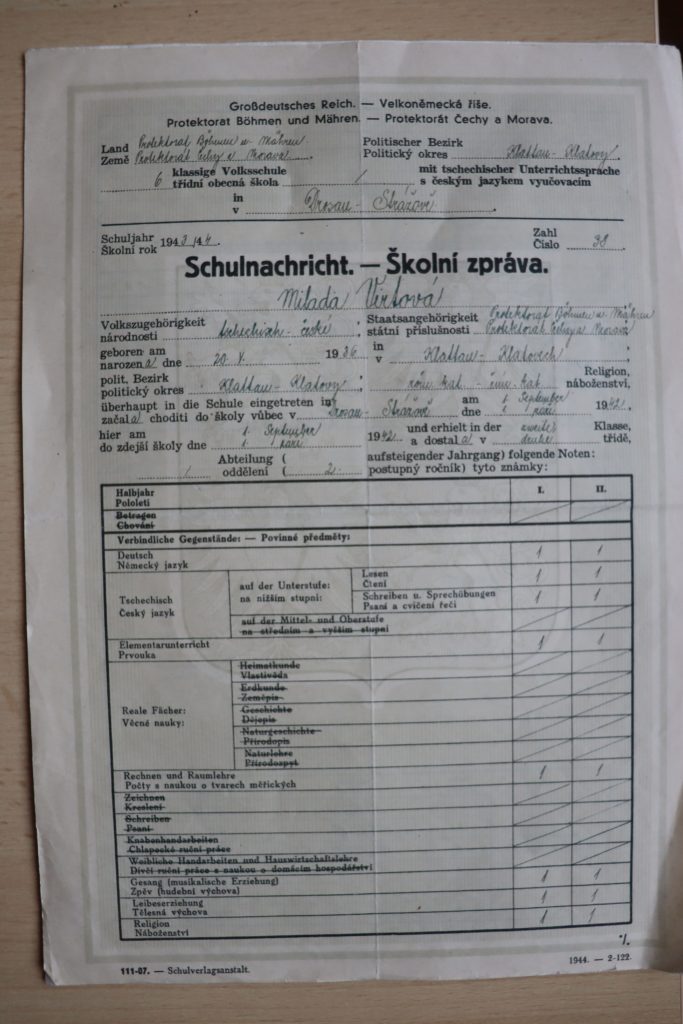 Großdeutsches Reich. — Velkoněmecká říše.
Protektorat Böhmen und Mähren. — Protektorát Čechy a Morava.
Land Protektorat Böhmen u. Mähren
Země Protektorát Čechy a Morava.
Politischer Bezirk
Politický okres Klattau-Klatovy.
6 klassige Volksschule
třídní obecná škola
mit tschechischer Unterrichtssprache
s českým jazykem vyučovacím
in
v Drosau-Strážově
Schuljahr
Školní rok 1943/44.
Zahl
Číslo 38
Schulnachricht. — Školní zpráva.
Milada Virtová
Volkszugehörigkeit
národnosti tschechisch-české,
Staatsangehörigkeit Protektorat Böhmen u. Mähren
státní příslušnosti Protektorát Čechy a Morava
geboren am
narozena dne 20. X. 1936
in
v Klattau-Klatovech,
polit. Bezirk
politický okres Klattau-Klatovy,
röm. kat. - řím. kat.
Religion,
náboženství,
überhaupt in die Schule eingetreten in
začala choditi do školy vůbec v Drosau-Strážově
am 1. September
dne 1. září 1942,
hier am 1. September
do zdejší školy dne 1. září 1942
und erhielt in der zweiten Klasse,
a dostala v druhé třídě,
/ Abteilung ( aufsteigender Jahrgang) folgende Noten:
oddělení ( 2. postupný ročník) tyto známky:
Halbjahr
Pololetí I. II.
Betragen
Chování
Verbindliche Gegenstände: — Povinné předměty:
Deutsch
Německý jazyk 1 1
Tschechisch
Český jazyk
auf der Unterstufe:
na nižším stupni:
Lesen
Čtení 1 1
Schreiben u. Sprechübungen
Psaní a cvičení řeči 1 1
auf der Mittel- und Oberstufe
na středním a vyšším stupni
Elementarunterricht
Prvouka 1 1
Reale Fächer:
Věcné nauky:
Heimatkunde
Vlastivěda
Erdkunde
Zeměpis
Geschichte
Dějepis
Naturgeschichte
Přírodopis
Naturlehre
Přírodozpyt
Rechnen und Raumlehre
Počty s naukou o tvarech měřických 1 1
Zeichnen
Kreslení
Schreiben
Psaní
Knabenhandarbeiten
Chlapecké ruční práce
Weibliche Handarbeiten und Hauswirtschaftslehre
Dívčí ruční práce s naukou o domácím hospodářství
Gesang (musikalische Erziehung)
Zpěv (hudební výchova) 1 1
Leibeserziehung
Tělesná výchova 1 1
Religion
Náboženství 1 1
·/.
111-07. — Schulverlagsanstalt.
1944. — 2-122.